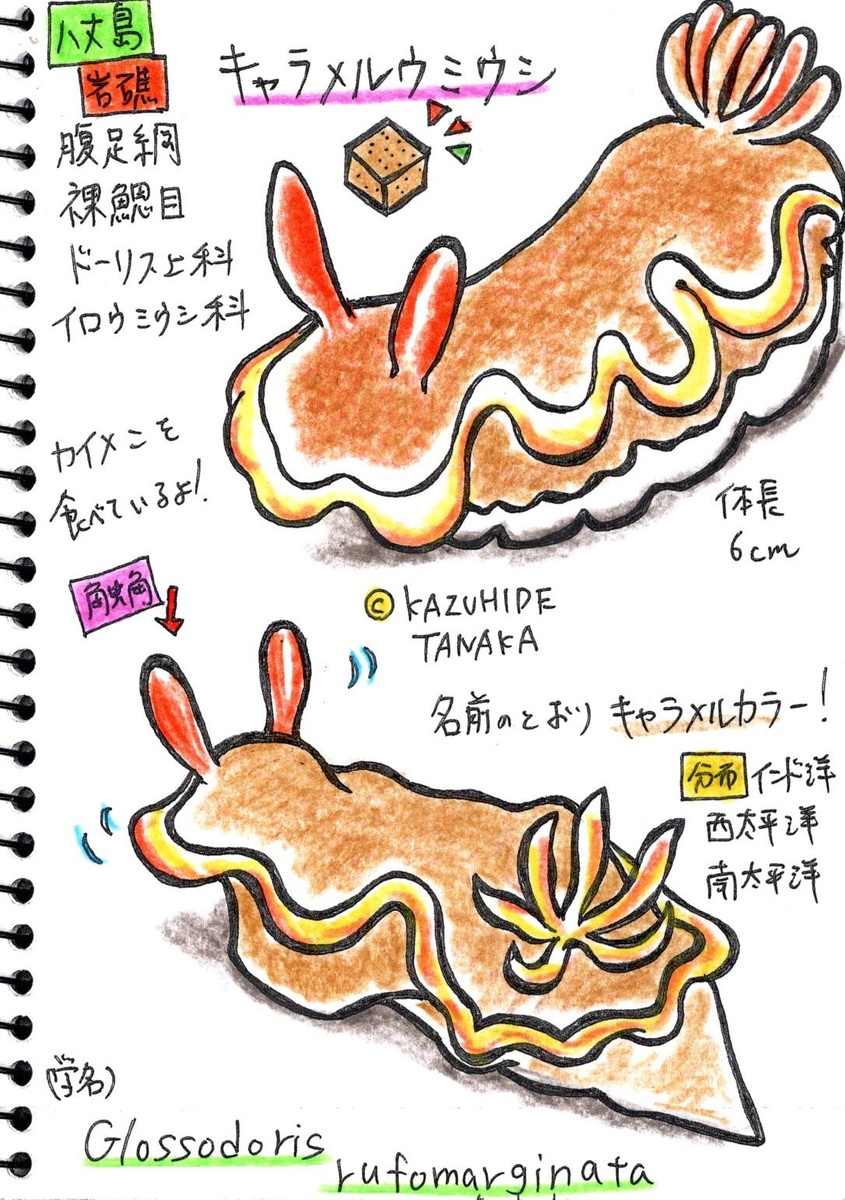 八丈島
岩礁
キャラメルウミウシ
腹足綱
裸鰓目
ドーリス上科
イロウミウシ科
カイメンを
食べているよ!
体長
6cm
触角
© KAZUHIDE
TANAKA
名前のとおり キャラメルカラー!
分布 インド洋
西太平洋
南太平洋
(学名)
Glossodoris
rufomarginata